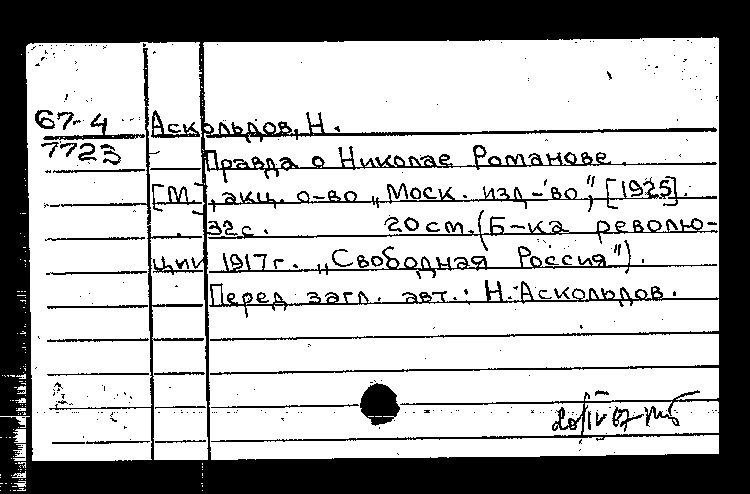 67-4 Аскольдов, Н.
7723 Правда о Николае Романове.
[М.], акц. о-во „Моск. изд-во", [1925].
32с. 20см. (Б-ка револю-
ции 1917г. „Свободная Россия").
Перед загл. авт.: Н. Аскольдов.
20/IV 67